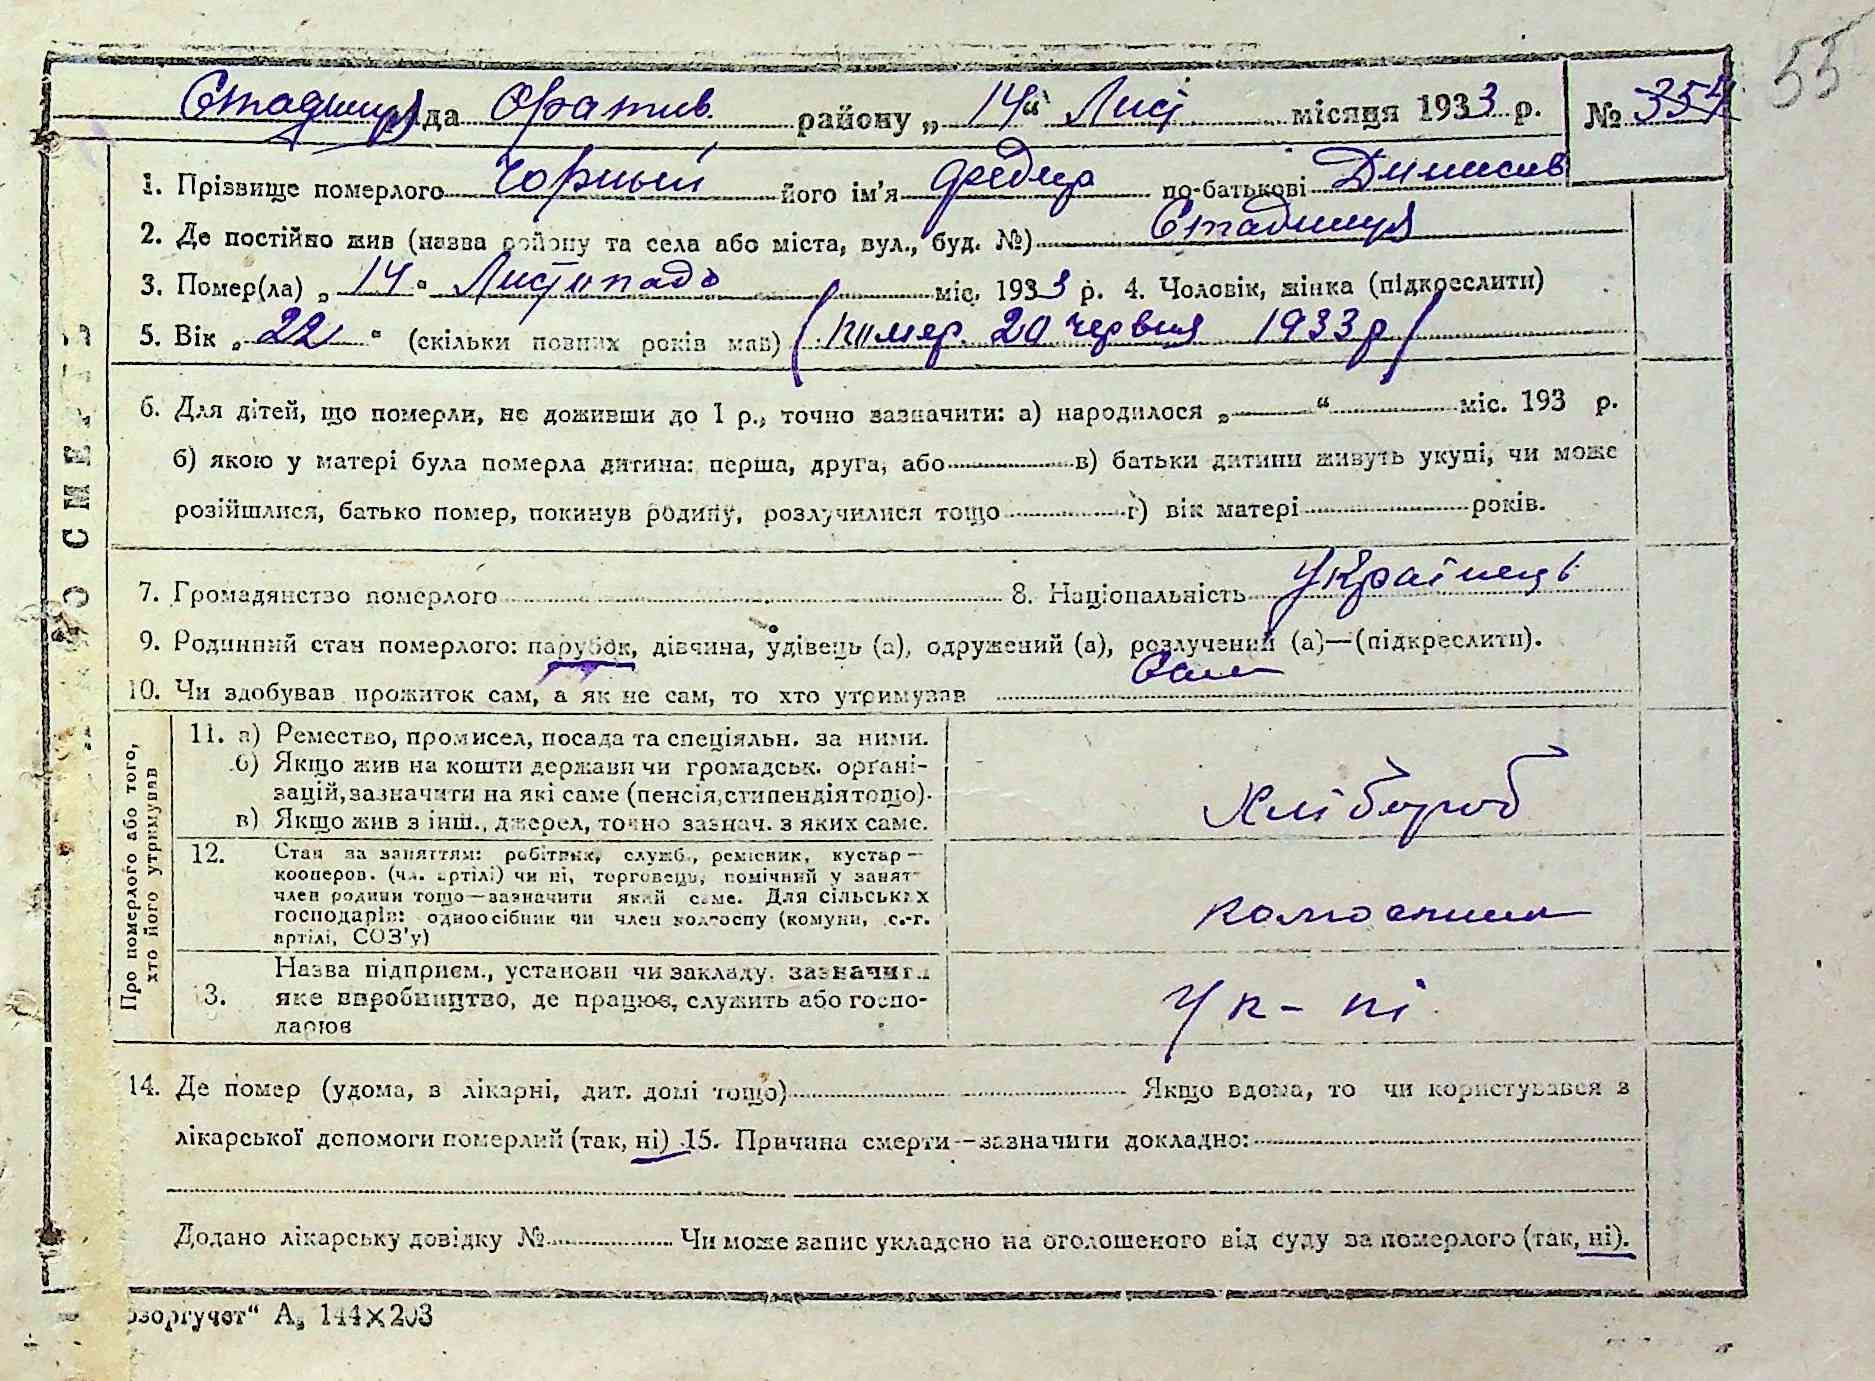 55
Стадниця рада Оратив району „ 14 “ Лист місяця 1933 р. № 354
1. Прізвище померлого Чорный його ім'я Федир по-батькові Динисив
2. Де постійно жив (назва району та села або міста, вул., буд. №) Стадниця
3. Помер(ла) „ 14 “ Листопада міс. 1933 р. 4. Чоловік, жінка (підкреслити)
5. Вік „ 22 “ (скільки повних років мав) (помер. 20 червня 1933 р)
6. Для дітей, що померли, не доживши до 1 р., точно зазначити: а) народилося „ “ міс. 193 р.
б) якою у матері була померла дитина: перша, друга, або в) батьки дитини живуть укупі, чи може
розійшлися, батько помер, покинув родину, розлучилися тощо г) вік матері років.
7. Громадянство померлого 8. Національність Українець
9. Родинний стан померлого: парубок, дівчина, удівець (а), одружений (а), розлучений (а)—(підкреслити).
10. Чи здобував прожиток сам, а як не сам, то хто утримував Сам
Про померлого або того, хто його утримував
11. а) Ремество, промисел, посада та спеціяльн. за ними.
б) Якщо жив на кошти держави чи громадськ. органі-
зацій, зазначити на які саме (пенсія, стипендія тощо).
в) Якщо жив з інш., джерел, точно зазнач. з яких саме.
Хлібороб
12. Стан за заняттям: робітник, служб., ремісник, кустар—
кооперов. (чл. артілі) чи ні, торговець, помічний у занят-
член родини тощо—зазначити який саме. Для сільських
господарів: одноосібник чи член колгоспу (комуни, с.-г.
артілі, СОЗ'у)
колгоспник
13. Назва підприєм., установи чи закладу, зазначити
яке виробництво, де працює, служить або госпо-
дарює
У к-пі
14. Де помер (удома, в лікарні, дит. домі тощо) Якщо вдома, то чи користувався з
лікарської допомоги померлий (так, ні) 15. Причина смерти—зазначити докладно:
Додано лікарську довідку № Чи може запис укладено на оголошеного від суду за померлого (так, ні).
озоргучет“ А, 144×203
О СМЕРТЬ